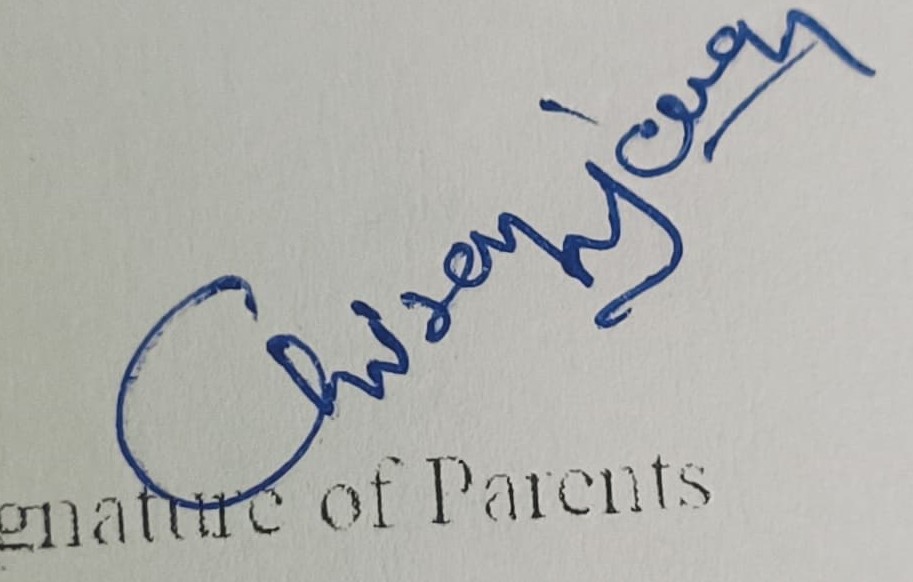 Chiranjeev
gnature of Parents